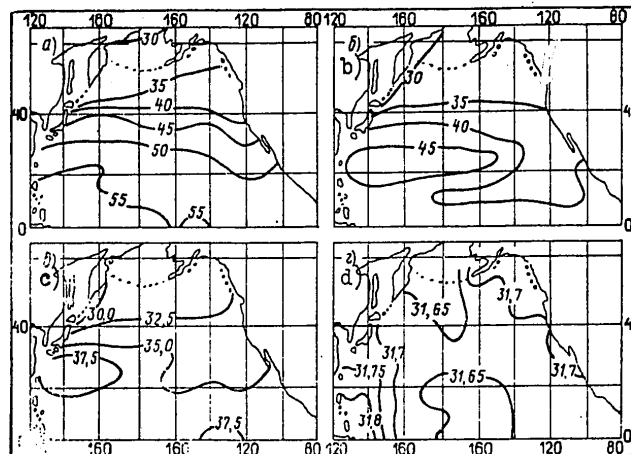 120 160 160 120 80 120 160 160 120 80
а) 30
35
40
45
50
55
55
40
0
б)
b)
30
35
40
45
40
0
в)
c)
30,0
32,5
35,0
37,5
37,5
40
г)
d)
31,65
31,7
31,7
31,75
31,8
31,65
31,7
40
0
160 160 120 80 120 160 160 120 80